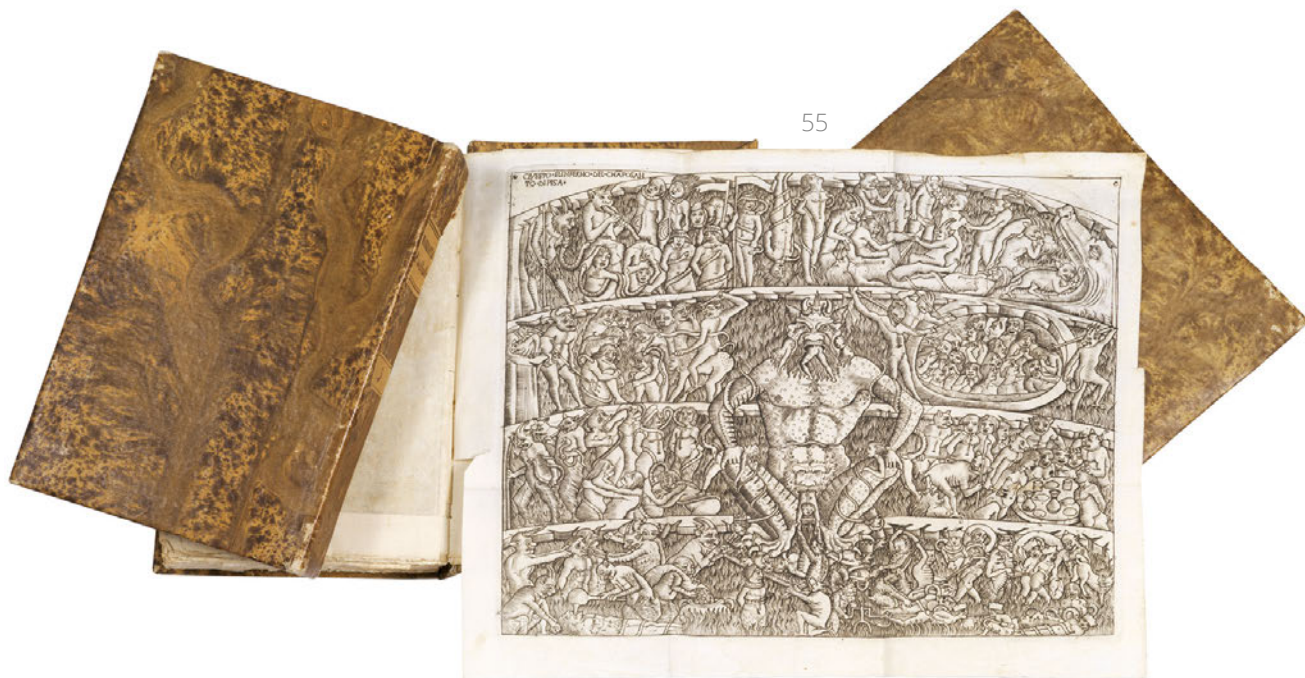 55
QVESTO · ELINFERNO · DEL · CHAPOSAN
TO · DI PISA ·